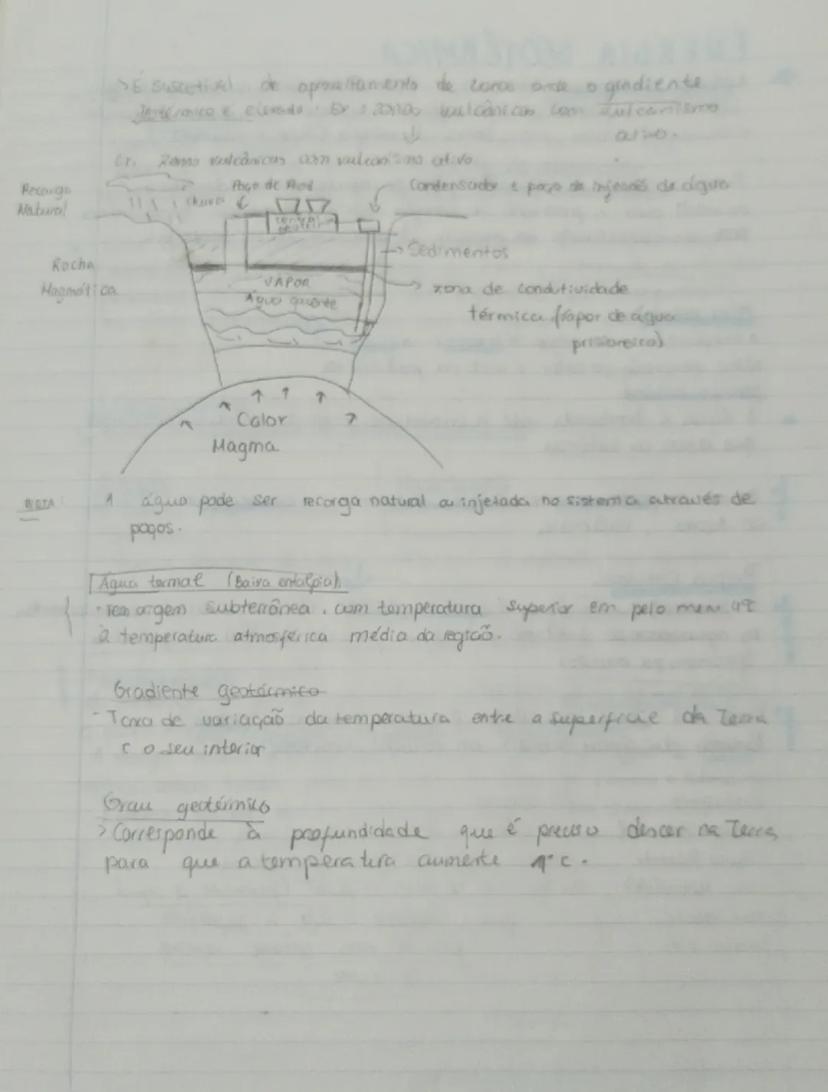 > É suscetível de aproveitamento de zonas onde o gradiente
geotérmico é elevado. Ex: zonas vulcânicas com vulcanismo
ativo.
Ex. Zonas vulcânicas com vulcanismo ativo
Recarga
Natural
Chuva
Poço de
Condensador e poço de injeção de água
Central
Sedimentos
Rocha
Magmática
VAPOR
Água quente
zona de condutividade
térmica (vapor de água
prisioneira)
Calor
Magma
NOTA: A água pode ser recarga natural ou injetada no sistema através de
poços.
Água termal (Baixa entalpia)
· Tem origem subterrânea, com temperatura superior em pelo menos 4°C
à temperatura atmosférica média da região.
Gradiente geotérmico
- Taxa de variação da temperatura entre a superfície da Terra
e o seu interior
Grau geotérmico
> Corresponde à profundidade que é preciso descer na Terra,
para que a temperatura aumente 1°C.